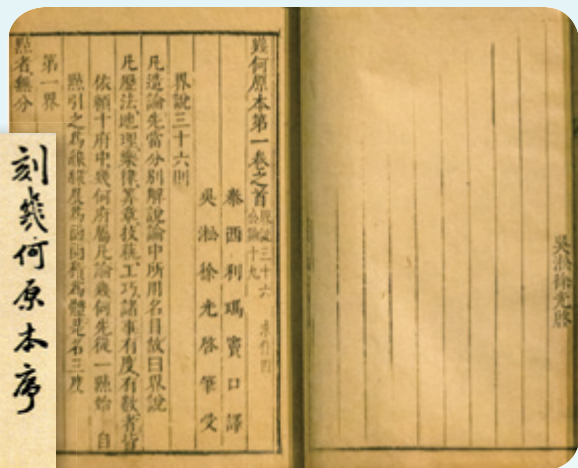 吳淞徐光啓
幾何原本第一卷之首 界說三十六 公論十九
泰西利瑪竇口譯
吳淞徐光啓筆受
界說三十六則
凡造論先當分別解說論中所用名目故曰界說
凡歷法地理樂律筭章技藝工巧諸事有度有數者皆
依賴十府中幾何府屬凡論幾何先從一點始自
點引之為線線展為面面積為體是名三度
第一界
點者無分
刻幾何原本序